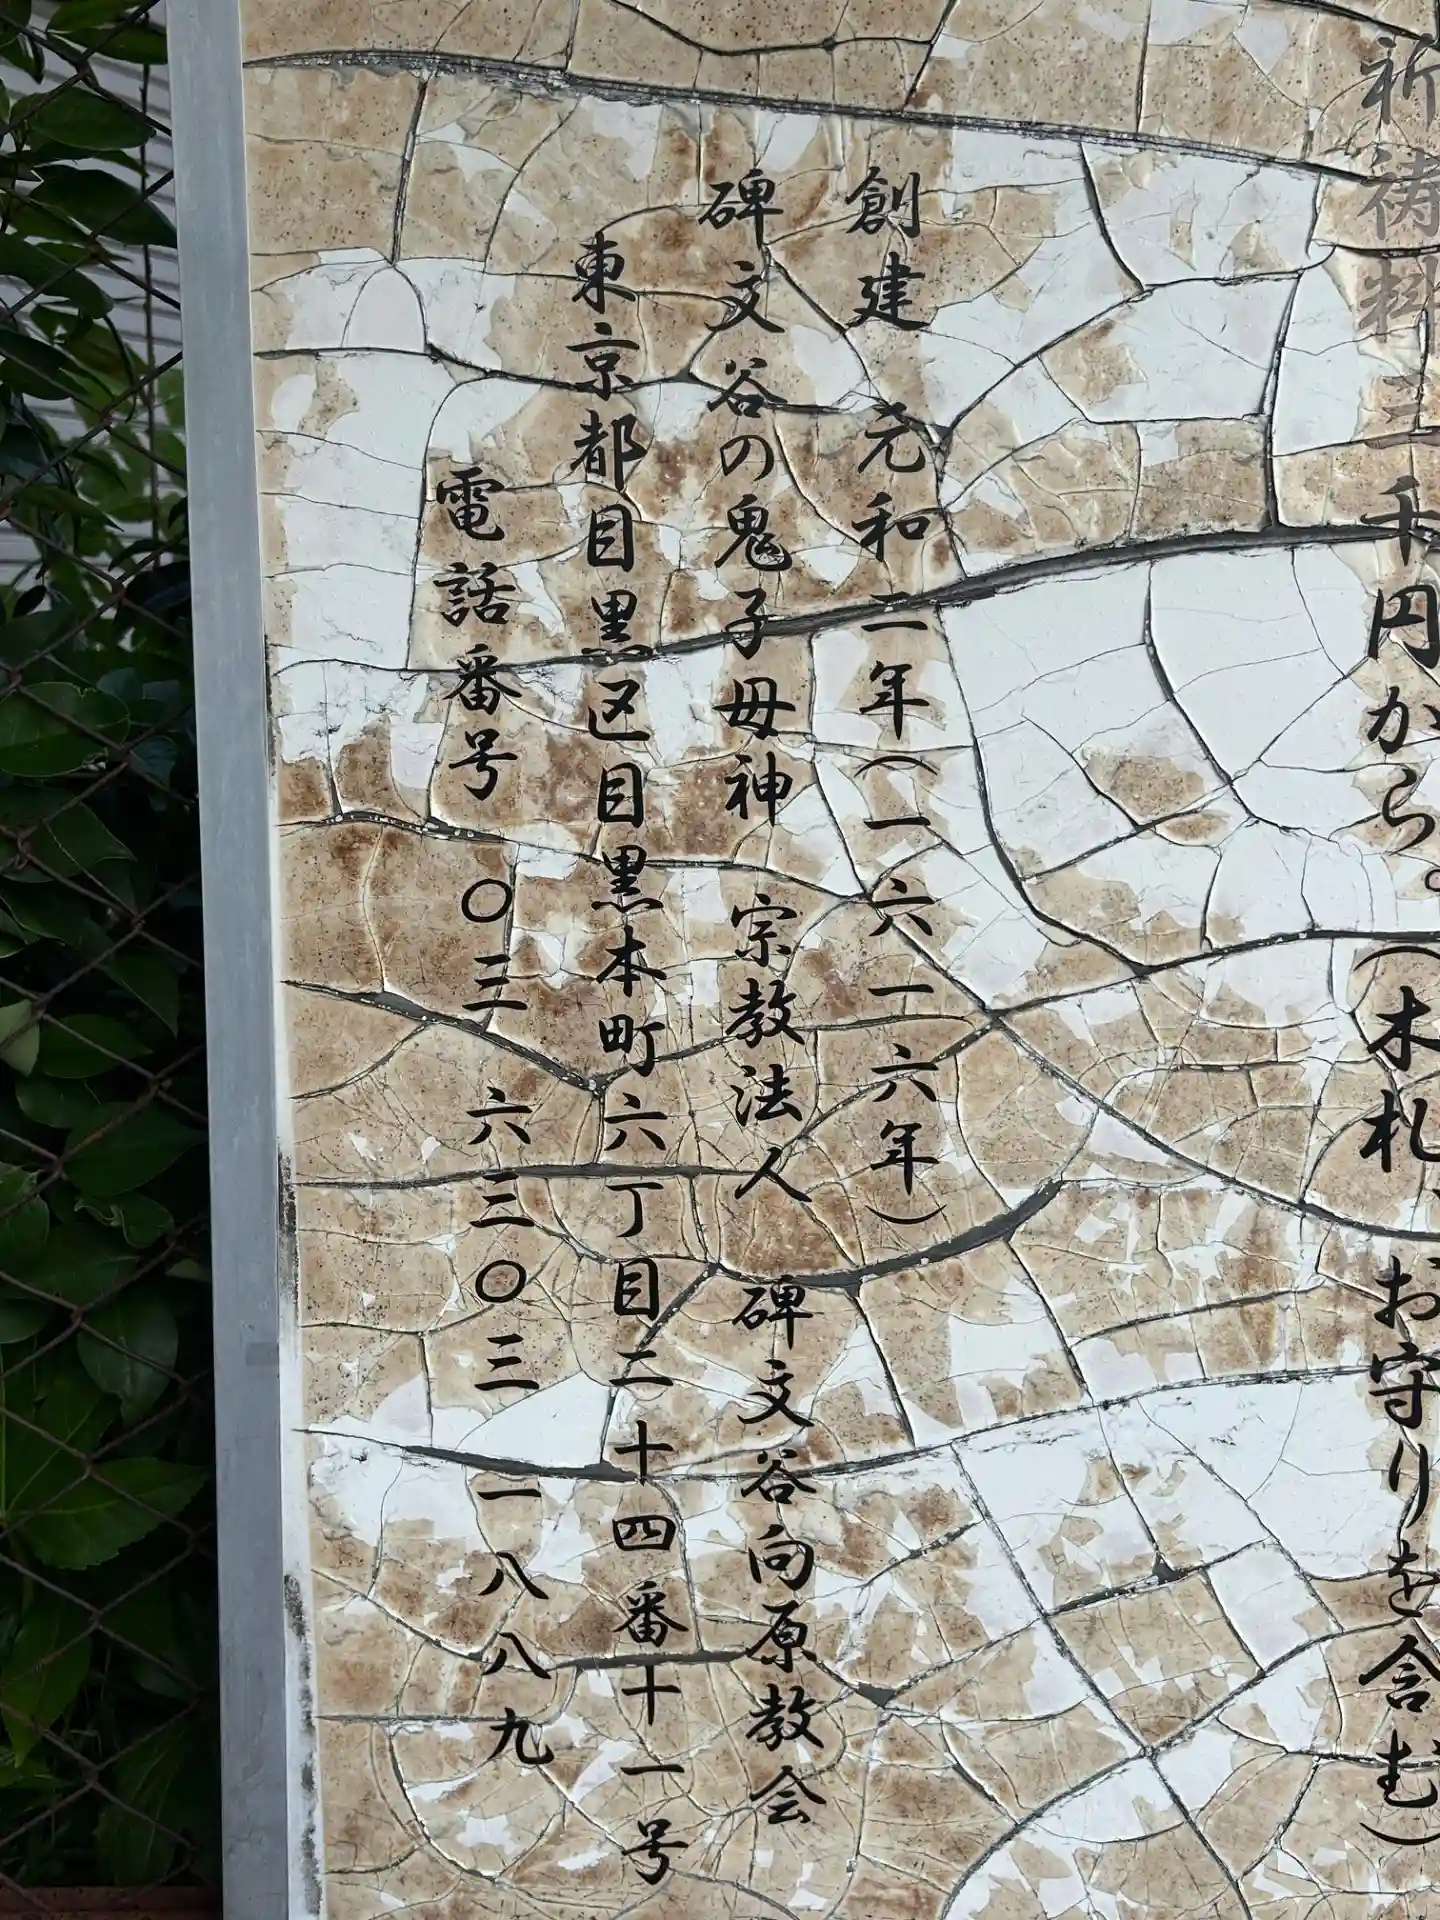 祈祷料三千円から。（木札、お守りを含む）
創建 元和二年（一六一六年）
碑文谷の鬼子母神 宗教法人 碑文谷向原教会
東京都目黒区目黒本町六丁目二十四番十一号
電話番号 〇三 六三〇三 一八八九